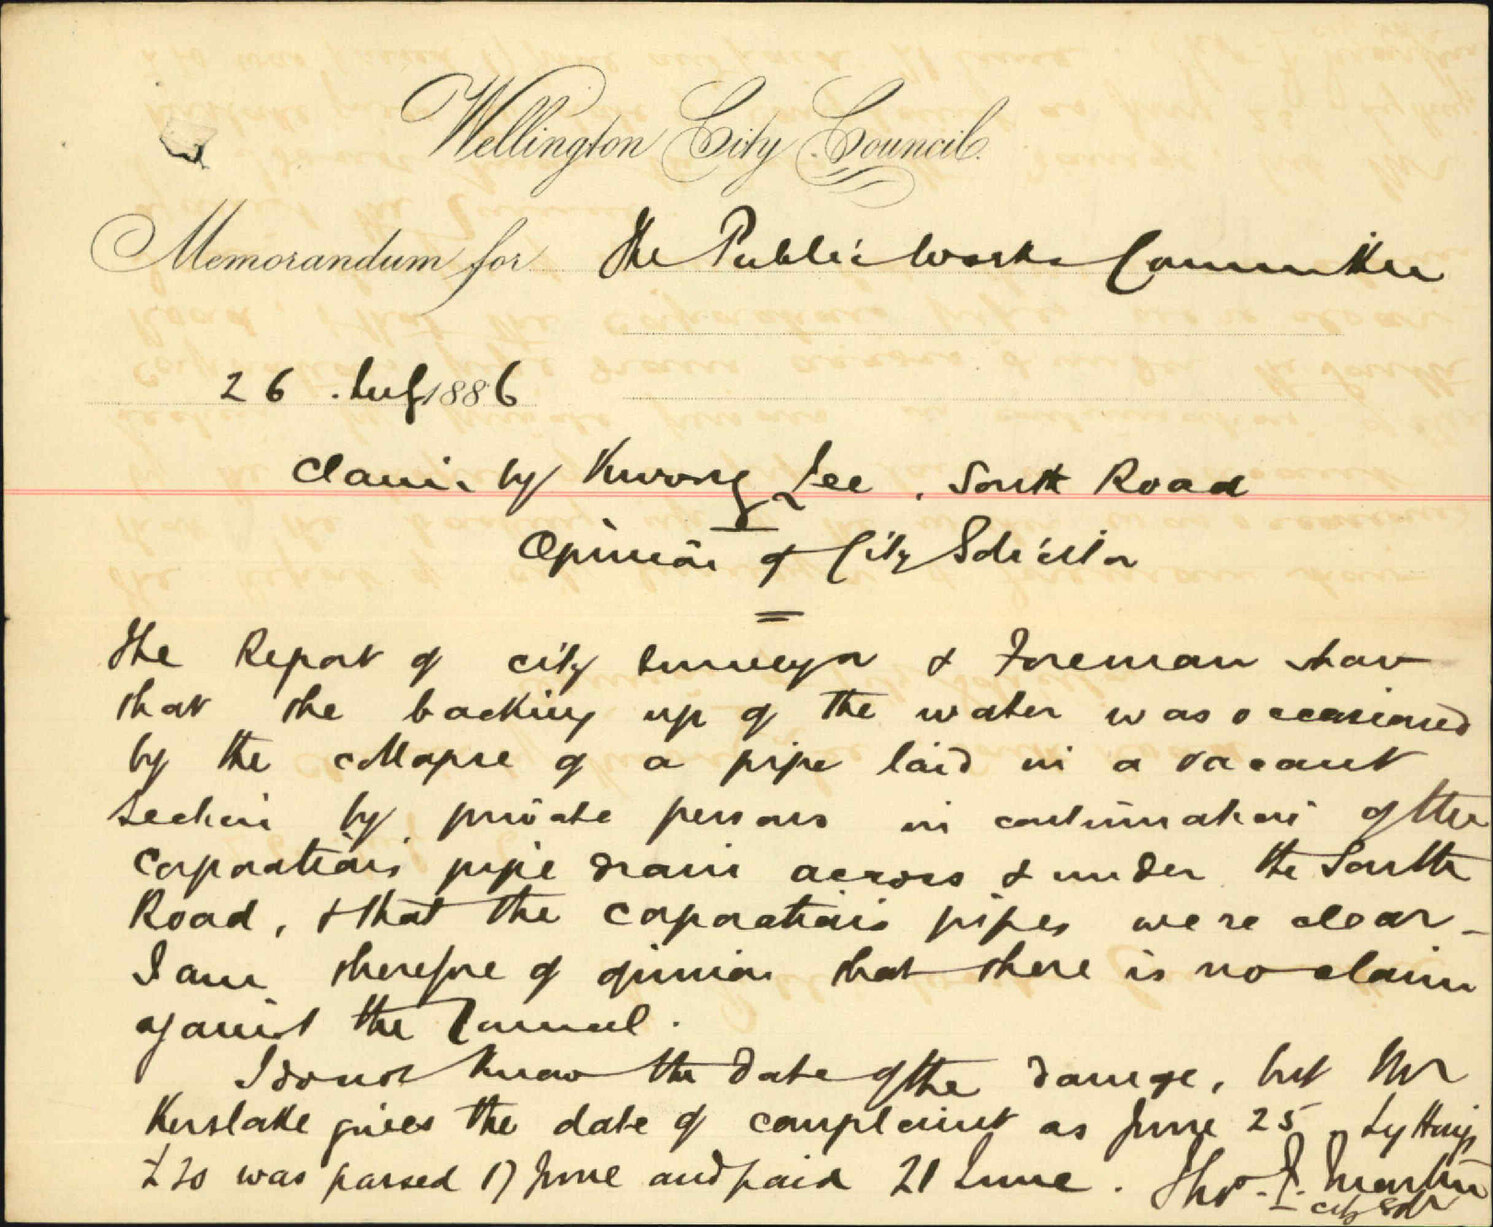 Wellington City Council.
Memorandum for The Public Works Committee
26 July 1886
Claim by Kwong Lee, South Road
Opinion of City Solicitor
The Report of city surveyor & Foreman show
that the backing up of the water was occasioned
by the collapse of a pipe laid in a vacant
section by private persons in continuation of the
corporation's pipe drain across & under the South
Road, & that the corporation's pipes were clear -
I am therefore of opinion that there is no claim
against the Council.
I do not know the date of the damage, but Mr
Kerslake gives the date of complaint as June 25.
£20 was passed 17 June and paid 21 June. Thos. F. Martin
City Solr